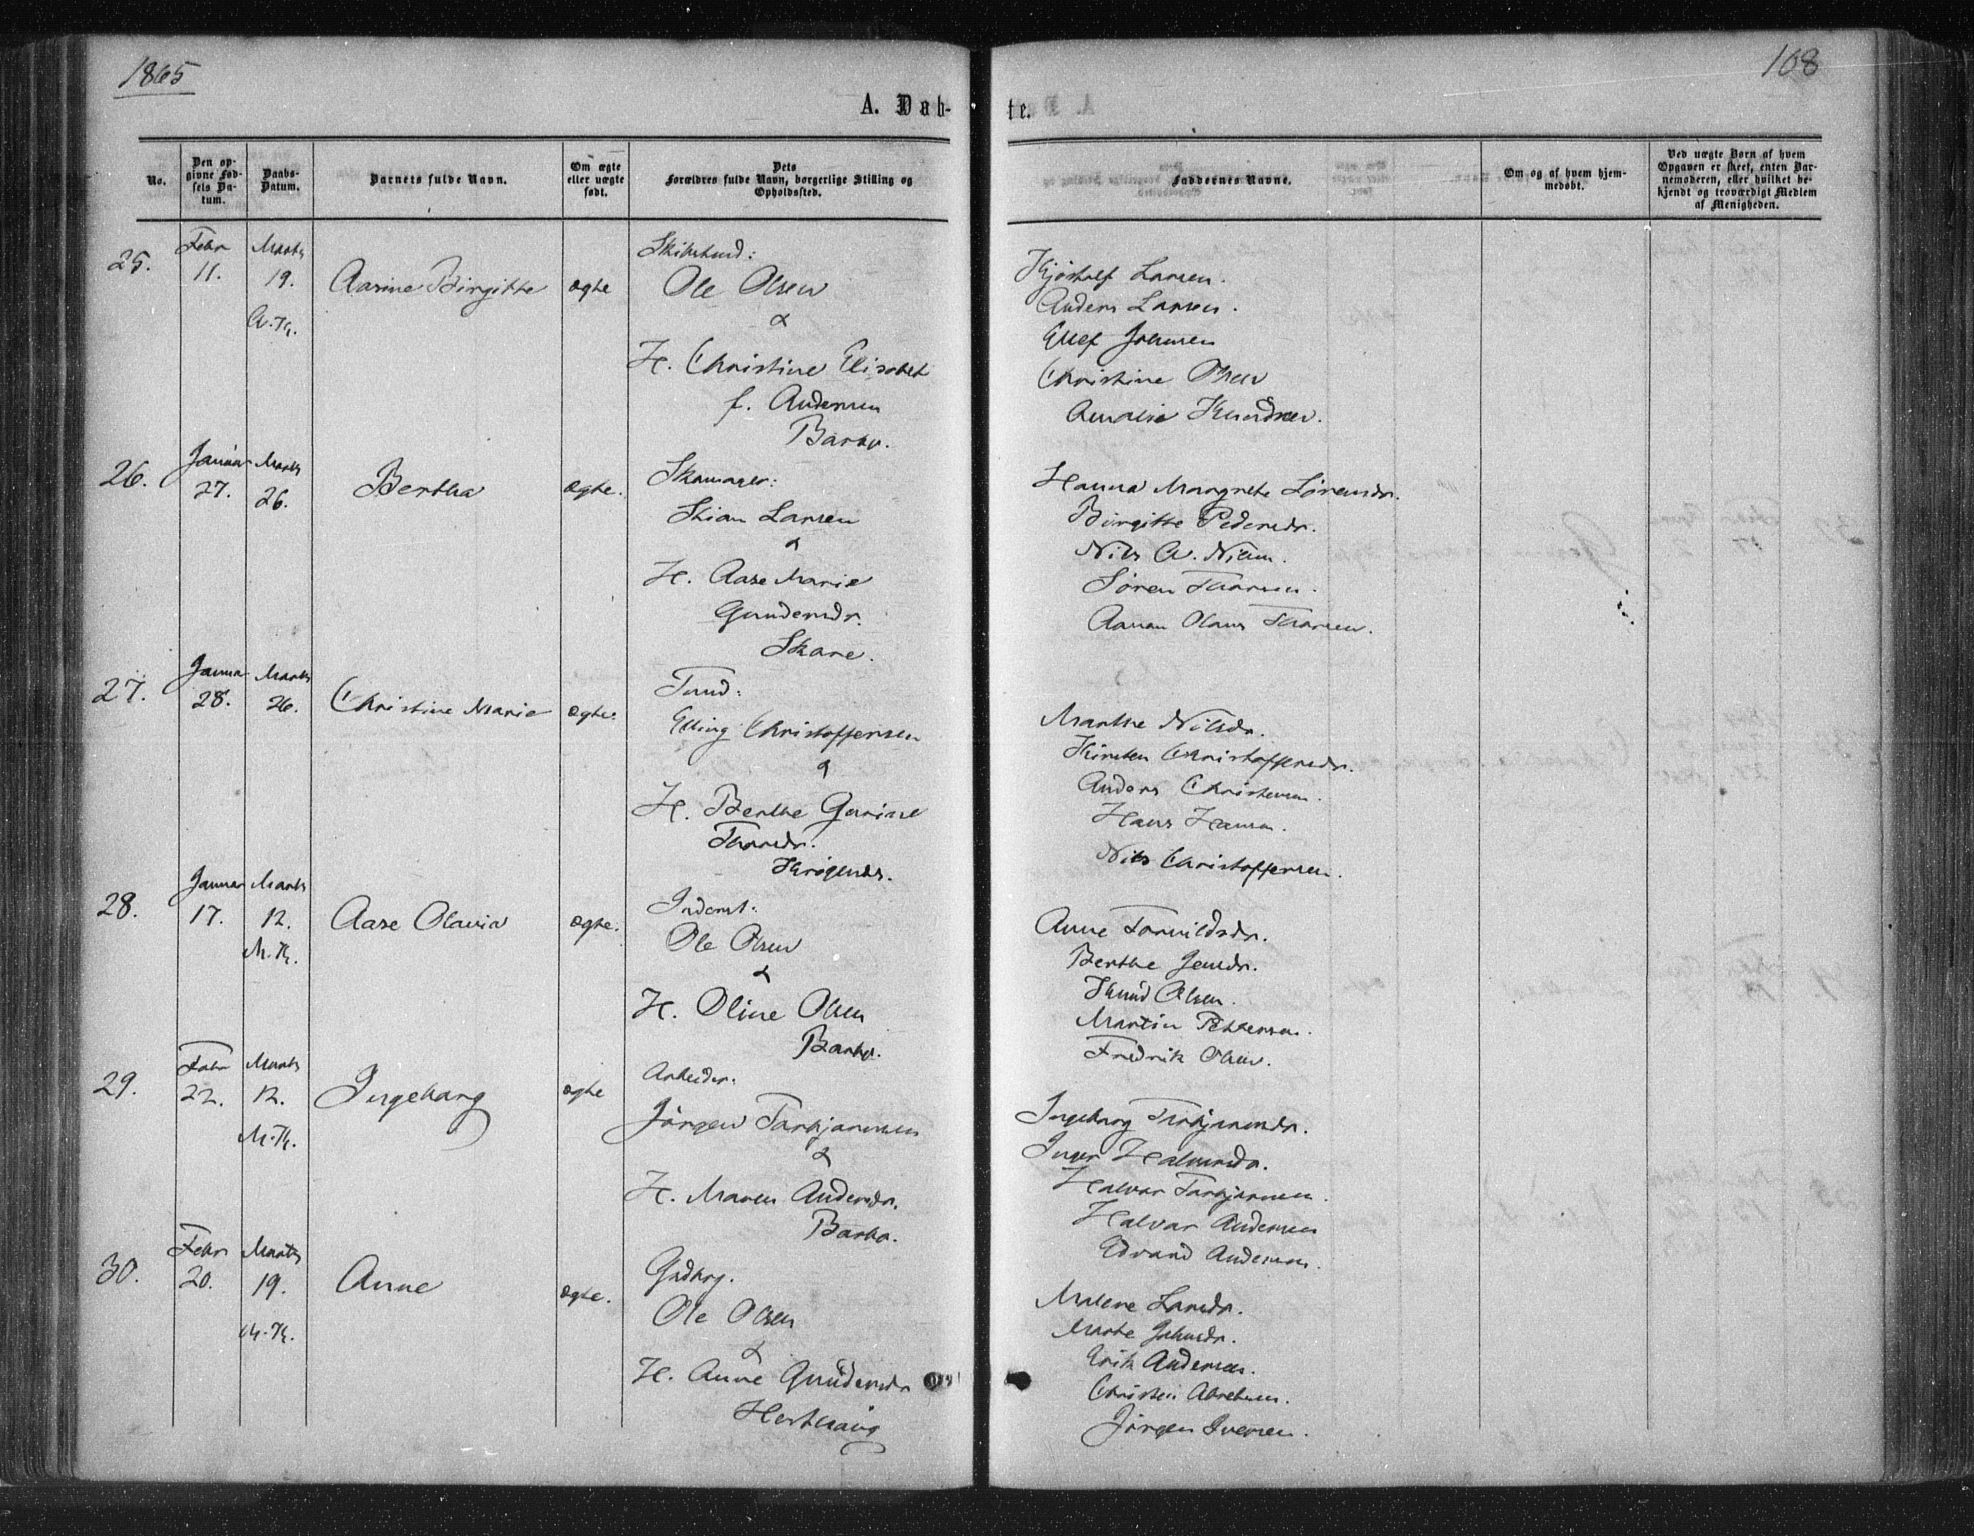 1865
108
A. Døb-
te.
No.
Den op-
givne Fød-
sels Da-
tum.
Daabs-
Datum.
Barnets fulde Navn.
Om ægte
eller uægte
født.
Dets
Forældres fulde Navn, borgerlige Stilling og
Opholdssted.
Faddernes Navne.
Om og af hvem hjem-
medøbt.
Ved uægte Barn af hvem
Opgaven er skeet, enten Bar-
nemoderen, eller hvilket be-
kjendt og troværdigt Medlem
af Menigheden.
25.
Febr
11.
Marts
19.
A.K.
Aasine Birgitte
ægte
Ole Olsen
&
H. Christine Elisabet
f. Andersen
Barbo.
Larsen.
Anders Larsen.
Ellef Johnsen
Christine Olsen
Amalie Knudsen.
26.
Januar
27.
Marts
26.
Bertha
ægte.
Stian Larsen
&
H. Aase Marie
Gundersdr.
Skare.
Hanna Margrete Lørensdr.
Birgitte Pedersdr.
Nils A. Nilsen.
Søren Thorsen.
Aanon Olaus Thorsen.
27.
Januar
28.
Marts
26.
Christine Marie
ægte.
Elling Christoffersen
&
H. Berthe Gurine
Thorsdr.
Krøgenes.
Marthe Nilsdr.
Kirsten Christoffersdr.
Anders Christensen.
Hans Hansen.
Nils Christoffersen.
28.
Januar
17.
Marts
12.
M.K.
Aase Olavia
ægte.
Inderst:
Ole Olsen
&
H. Oline Olsen
Barbo.
Anne Tarvildsdr.
Berthe Jensdr.
Knud Olsen.
Martin Pettersen.
Fredrik Olsen.
29.
Febr
22.
Marts
12.
M.K.
Ingeborg
ægte
Arbeider:
Jørgen Tarkjørnsen
&
H. Maren Andersdr.
Barbo.
Ingeborg Tarkjørnsdr.
Inger Halvorsdr.
Halvor Tarkjørnsen.
Halvor Andersen
Edvard Andersen.
30.
Febr
20.
Marts
19.
M.K.
Anne
ægte.
Gadbrg.
Ole Olsen
&
H. Anne Gundersdr
Malene Larsdr.
Marte Johnsdr.
Erik Andersen.
Christen Abrahams.
Jørgen Iversen.